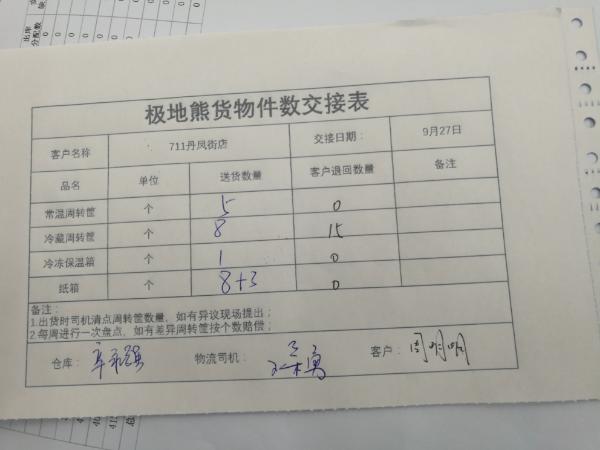 出库
分配数
0
0
0
0
0
0
极地熊货物件数交接表
客户名称 711丹凤街店 交接日期: 9月27日
品名 单位 送货数量 客户退回数量 备注
常温周转筐 个 5 0
冷藏周转筐 个 8 15
冷冻保温箱 个 1 0
纸箱 个 8+3 0
备注:
1.出货时司机清点周转筐数量,如有异议现场提出;
2.每周进行一次盘点,如有差异周转筐按个数赔偿;
仓库: 物流司机: 客户: 周明明